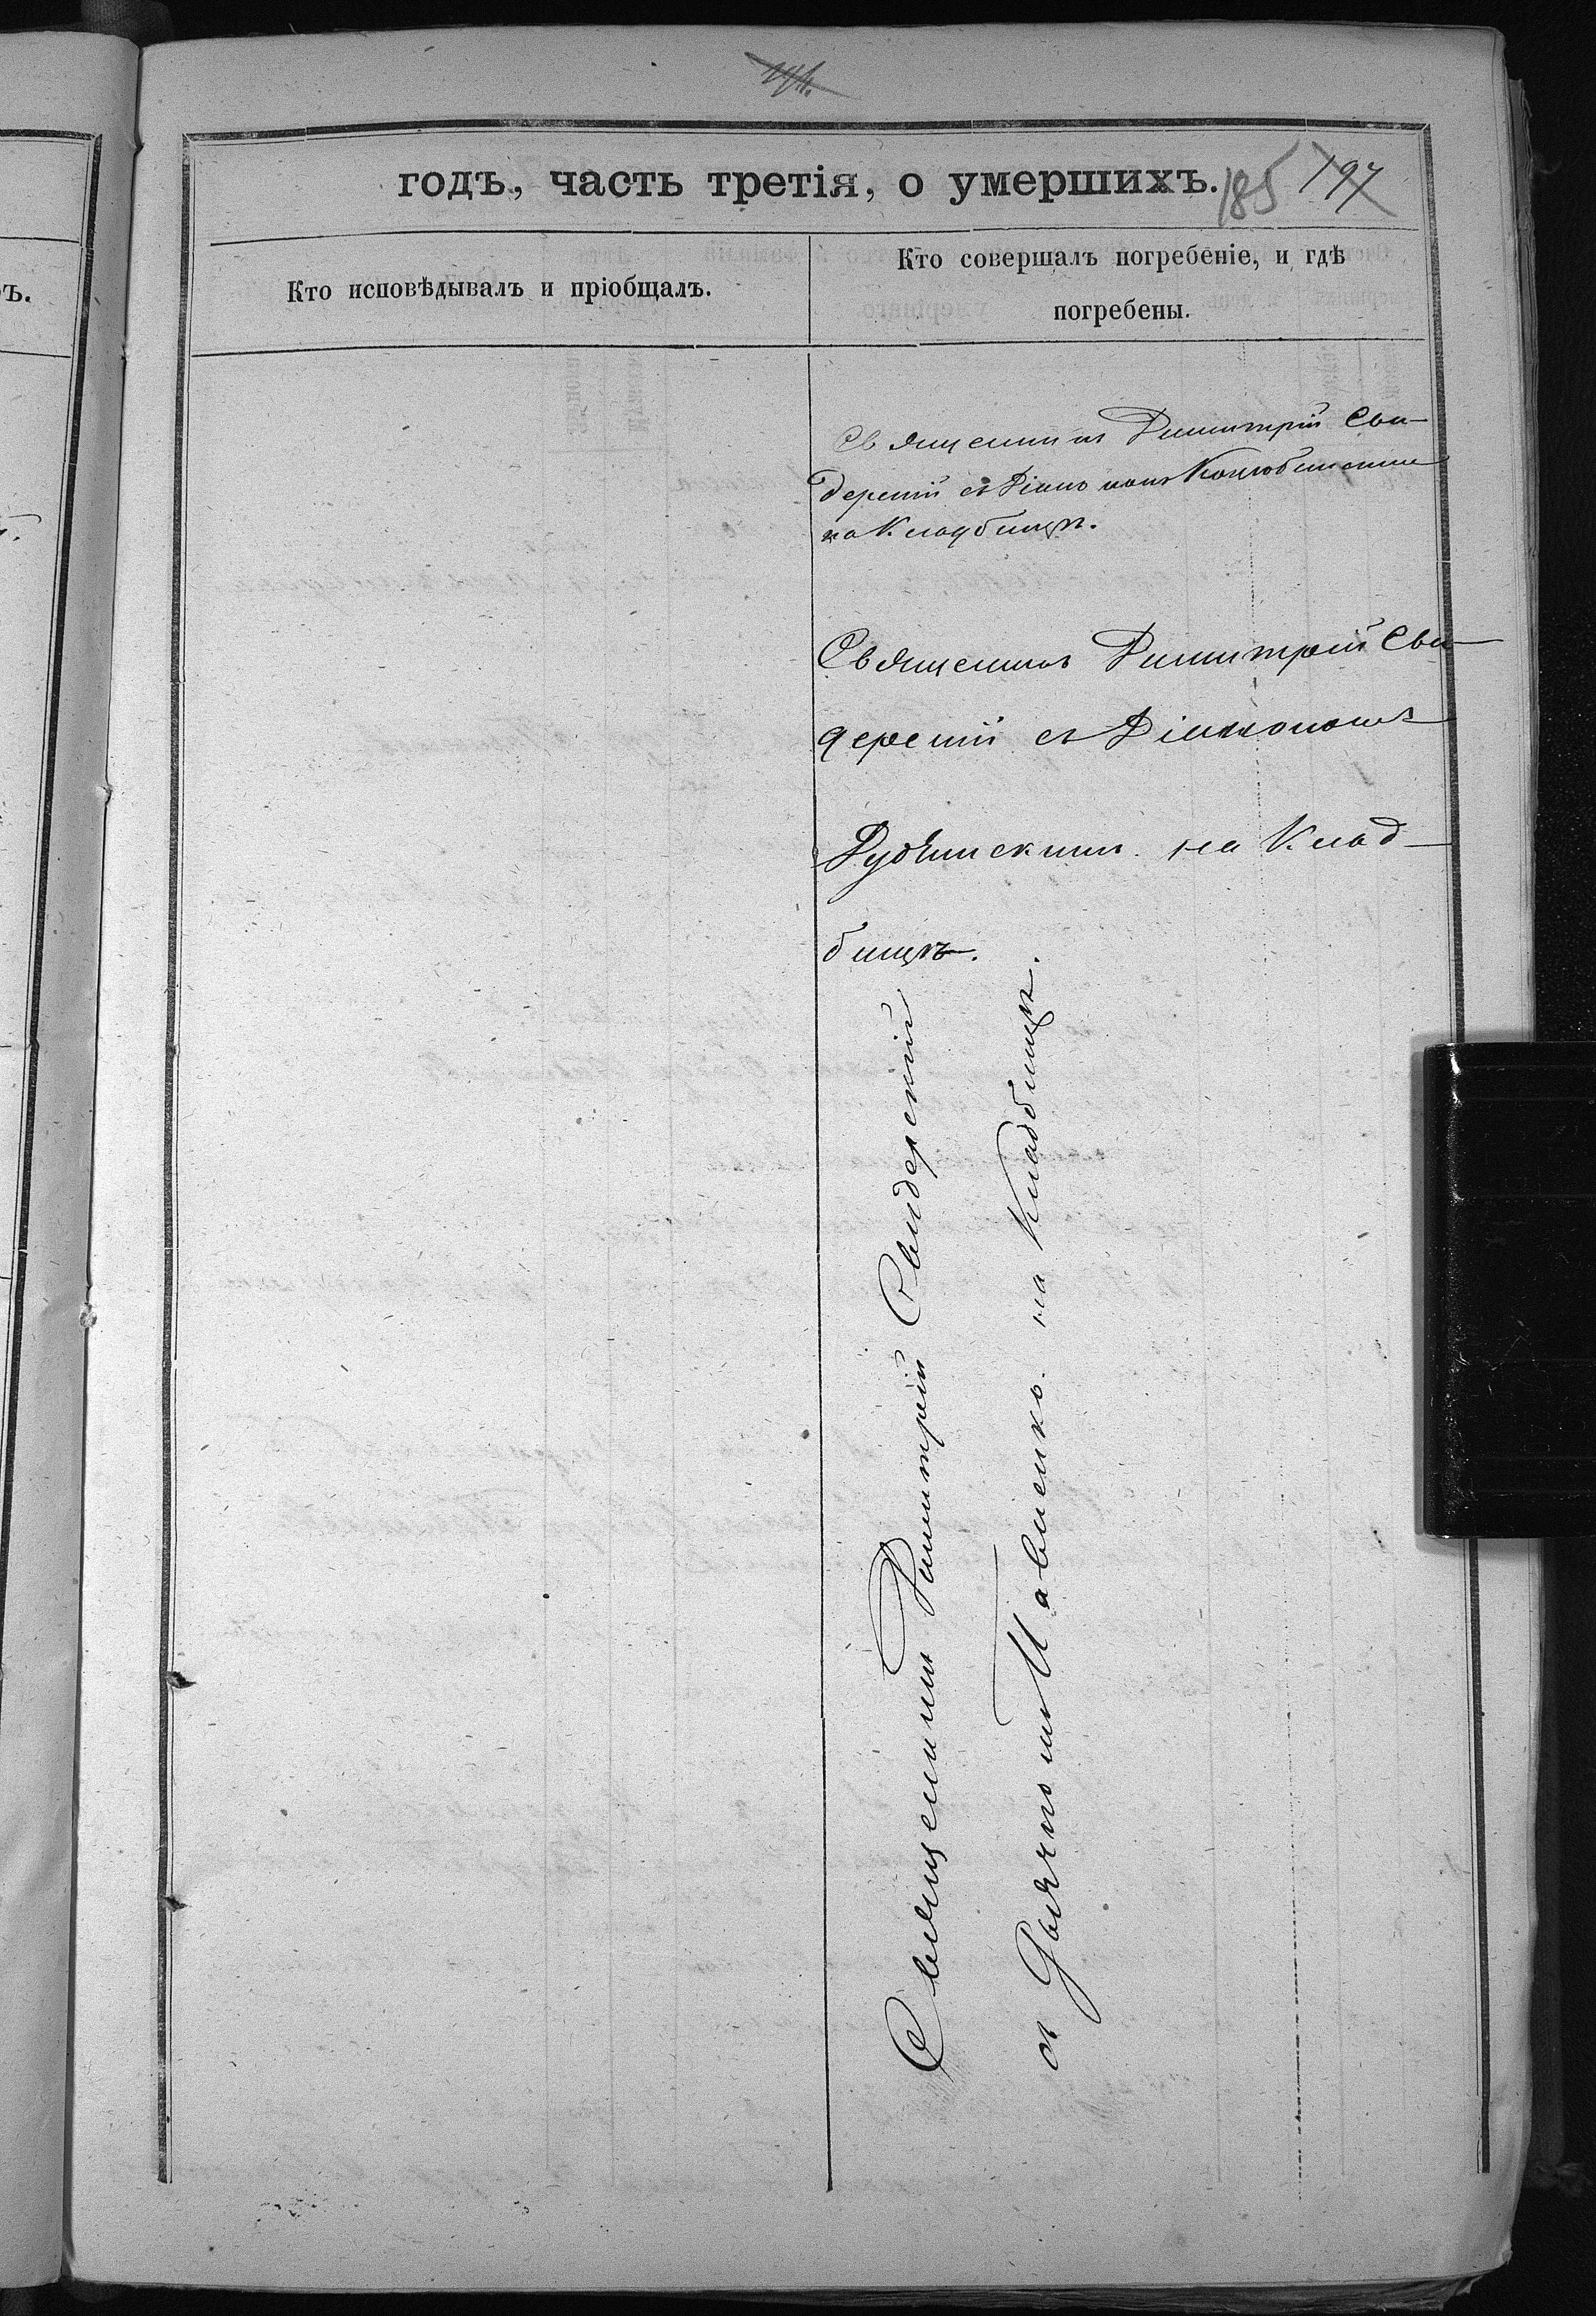 годъ, часть третія, о умершихъ.
185 197
Кто исповѣдывалъ и пріобщалъ.
Кто совершалъ погребеніе, и гдѣ
погребены.
Священникъ Димитрій Сви-
дерскій съ Діакономъ Коцюбинскимъ
на Кладбищѣ.
Священникъ Димитрій Сви-
дерскій съ Діакономъ
Рудзинскимъ на Клад-
бищѣ.
Священникъ Димитрій Свидерскій
съ Дьячкомъ Савченко на Кладбищѣ.
ъ.